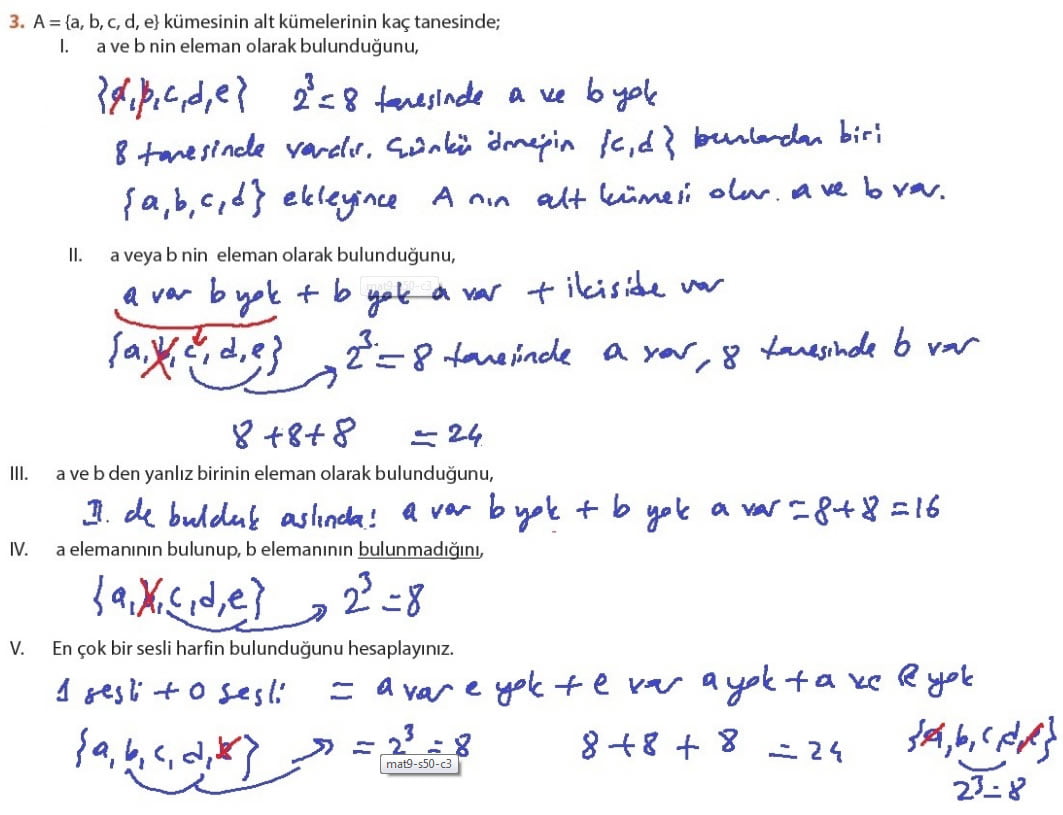 3. A = {a, b, c, d, e} kümesinin alt kümelerinin kaç tanesinde;
I. a ve b nin eleman olarak bulunduğunu,
{a,b,c,d,e} 2³=8 tanesinde a ve b yok
8 tanesinde vardır. Çünkü örneğin {c,d} bunlardan biri
{a,b,c,d} ekleyince A nın alt kümesi olur. a ve b var.
II. a veya b nin eleman olarak bulunduğunu,
a var b yok + b yok a var + ikiside var
{a,b,c,d,e} 2³=8 tanesinde a var, 8 tanesinde b var
8+8+8 = 24
III. a ve b den yanlız birinin eleman olarak bulunduğunu,
II. de bulduk aslında! a var b yok + b yok a var =8+8=16
IV. a elemanının bulunup, b elemanının bulunmadığını,
{a,b,c,d,e} 2³=8
V. En çok bir sesli harfin bulunduğunu hesaplayınız.
1 sesli + 0 sesli = a var e yok + e var a yok + a ve e yok
{a,b,c,d,e} = 2³ = 8 8+8+8 = 24 {a,b,c,d,e}
mat9-s50-c3
2³=8